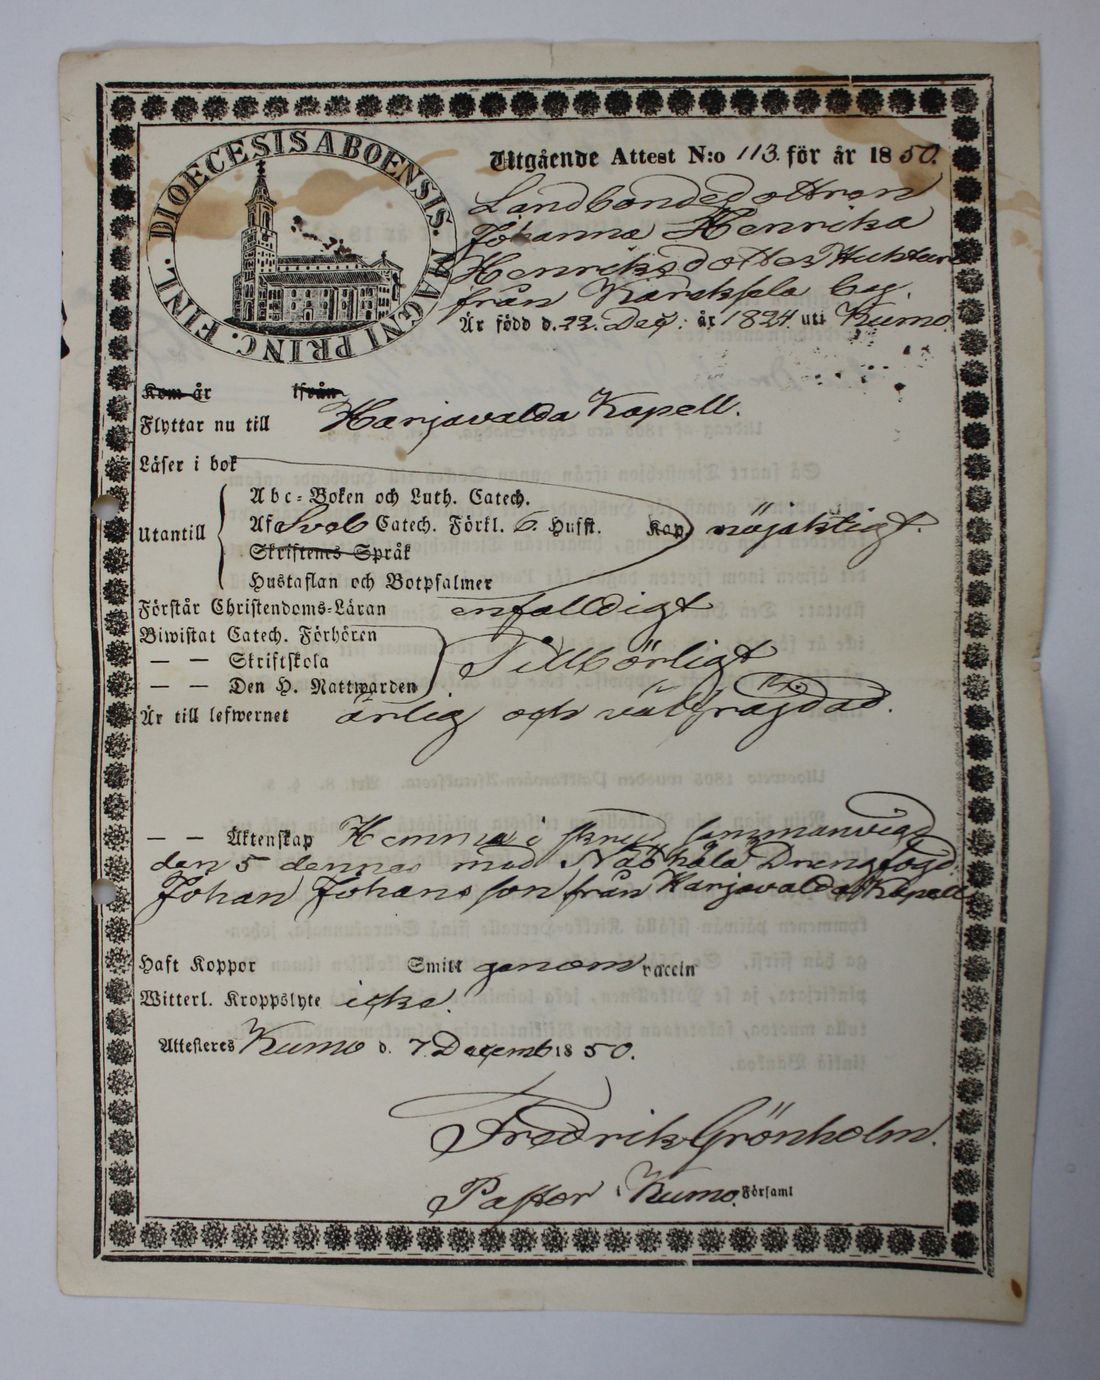 DIOECESIS ABOENSIS. MAGNI PRINC. FINL.
Utgående Attest N:o 113. för år 1850.
Landbondedottren
Johanna Henrika
Henriksdotter
från Kareksela by.
Är född d. 22. Dec: år 1824. uti Kumo
Kom år ifrån
Flyttar nu till Harjavalda Kapell.
Läser i bok
Utantill
Abc-Boken och Luth. Catech.
Af Sveb Catech. Förkl. 6. Hufst. Kap nöjaktigt.
Skriftenes Språk
Hustaflan och Botpsalmer
Förstår Christendoms-Läran enfalldigt
Biwistat Catech. Förhören
— — Skriftskola Tillbörligt
— — Den H. Nattwarden
Är till lefwernet ärlig och välfrägdad.
— — Äktenskap Hemma i sammanvigd
den 5 dennes med Näthåla Drengen
Johan Johansson från Harjavalda Kapell
Haft Koppor Smitt genom vaccin
Witterl. Kroppslyte icke.
Attesteres Kumo d. 7 Decemb 1850.
Fredrik Grönholm.
Pastor i Kumo. Församl